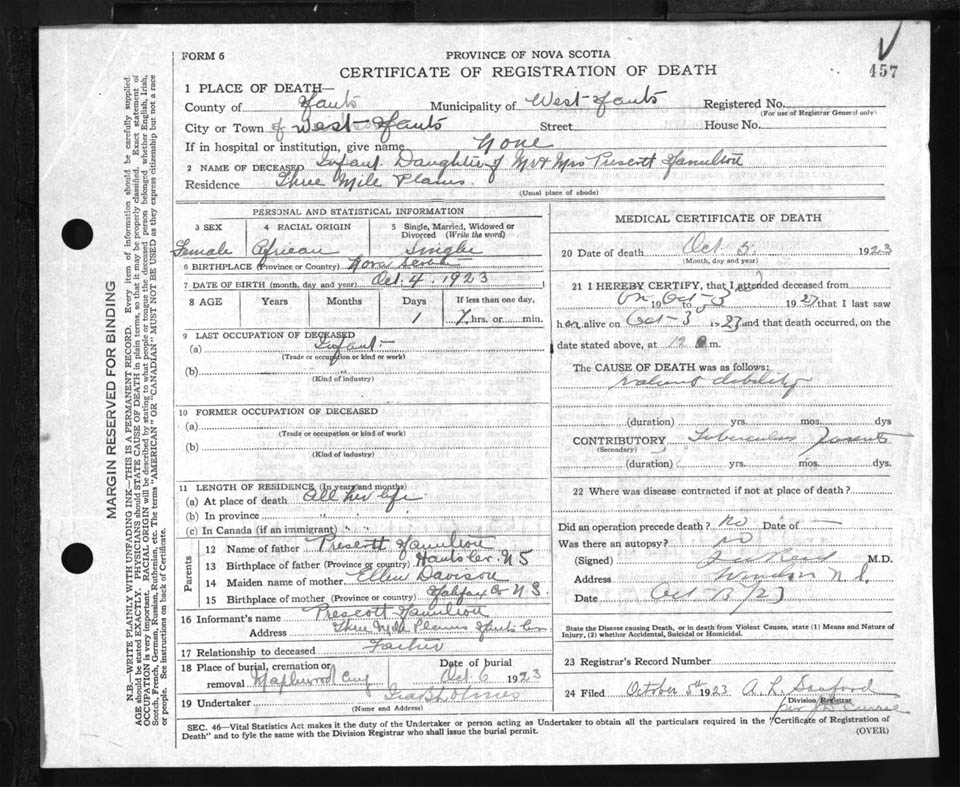 FORM 6
PROVINCE OF NOVA SCOTIA
CERTIFICATE OF REGISTRATION OF DEATH
457
1 PLACE OF DEATH—
County of Hants Municipality of West Hants Registered No.
(For use of Registrar General only)
City or Town of West Hants Street House No.
If in hospital or institution, give name None
2 NAME OF DECEASED Infant Daughter of Mr & Mrs Prescott Hamilton
Residence Three Mile Plains.
(Usual place of abode)
PERSONAL AND STATISTICAL INFORMATION
3 SEX 4 RACIAL ORIGIN 5 Single, Married, Widowed or Divorced (Write the word)
Female African Single
6 BIRTHPLACE (Province or Country) Nova Scotia
7 DATE OF BIRTH (month, day and year) Oct. 4, 1923
8 AGE Years Months Days If less than one day,
1 hrs. or min.
9 LAST OCCUPATION OF DECEASED
(a) Infant
(Trade or occupation or kind or work)
(b)
(Kind of industry)
10 FORMER OCCUPATION OF DECEASED
(a)
(Trade or occupation or kind of work)
(b)
(Kind of industry)
11 LENGTH OF RESIDENCE (In years and months)
(a) At place of death All her life
(b) In province " "
(c) In Canada (if an immigrant) " "
Parents
12 Name of father Prescott Hamilton
13 Birthplace of father (Province or country) Hants Co. N S
14 Maiden name of mother Ellen Davison
15 Birthplace of mother (Province or country) Halifax Co N S.
16 Informant's name Prescott Hamilton
Address Three Mile Plains Hants Co
17 Relationship to deceased Father
18 Place of burial, cremation or removal Maplewood Cem Date of burial Oct 6 1923
19 Undertaker Ira B. Holmes
(Name and Address)
MEDICAL CERTIFICATE OF DEATH
20 Date of death Oct 5. 1923
(Month, day and year)
21 I HEREBY CERTIFY, that I attended deceased from
on Oct-3 19 to 1923 that I last saw
her alive on Oct-3 1923 and that death occurred, on the
date stated above, at 12 m.
The CAUSE OF DEATH was as follows:
debility
(duration) yrs. mos. dys
CONTRIBUTORY Tuberculous Parents
(Secondary)
(duration) yrs. mos. dys.
22 Where was disease contracted if not at place of death?
Did an operation precede death? No Date of —
Was there an autopsy? No
(Signed) Reid M.D.
Address Windsor N.S.
Date Oct 13/23
State the Disease causing Death, or in death from Violent Causes, state (1) Means and Nature of Injury, (2) whether Accidental, Suicidal or Homicidal.
23 Registrar's Record Number
24 Filed October 5th 1923 A. L. Sanford
Division Registrar
per Currie
SEC. 46—Vital Statistics Act makes it the duty of the Undertaker or person acting as Undertaker to obtain all the particulars required in the "Certificate of Registration of
Death" and to fyle the same with the Division Registrar who shall issue the burial permit. (OVER)
MARGIN RESERVED FOR BINDING
N.B.—WRITE PLAINLY WITH UNFADING INK—THIS IS A PERMANENT RECORD. Every item of information should be carefully supplied.
AGE should be stated EXACTLY. PHYSICIANS should STATE CAUSE OF DEATH in plain terms, so that it may be properly classified. Exact statement of
OCCUPATION is very important. RACIAL ORIGIN will be described by stating to what people or tongue the deceased person belonged whether English, Irish,
Scotch, French, German, Russian, Ruthenian, etc. The terms "AMERICAN" OR "CANADIAN" MUST NOT BE USED as they express citizenship but not a race
or people. See instructions on back of Certificate.